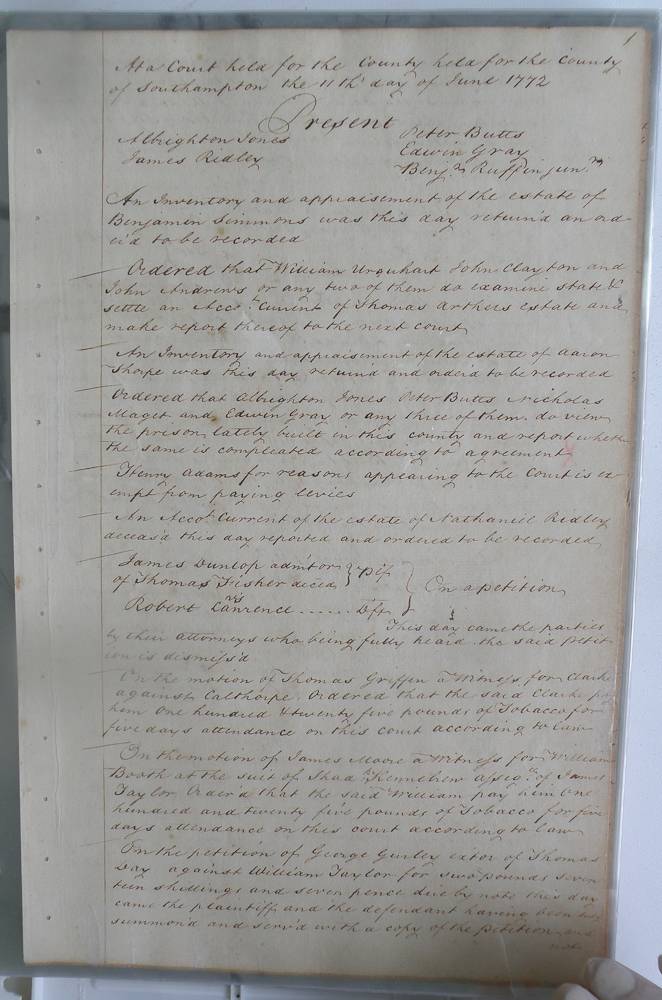 1
At a Court held for the County held for the County
of Southampton the 11th day of June 1772
Present
Albrighton Jones
James Ridley
Peter Butts
Edwin Gray
Benjn Ruffin junr
An Inventory and appraisement of the estate of
Benjamin Simmons was this day return'd an ord-
er'd to be recorded
Ordered that William Urquhart John Clayton and
John Andrews or any two of them do examine state &
settle an Accot. Current of Thomas Arthers estate and
make report thereof to the next court
An Inventory and appraisement of the estate of Aaron
Thorpe was this day return'd and order'd to be recorded
Ordered that Albrighton Jones Peter Butts Nicholas
Maget and Edwin Gray or any three of them do view
the prison lately built in this county and report wheth
the same is compleated according to agreement
Henry Adams for reasons appearing to the Court is ex
empt from paying levies
An Accot. Current of the estate of Nathaniel Ridley
deceas'd this day reported and ordered to be recorded
James Dunlop admitor } Plf
of Thomas Fisher deced
vs } On a petition
Robert Lawrence ...... Dft
This day came the parties
by their attorneys who being fully heard the said Petit
ion is dismiss'd
On the motion of Thomas Griffin a Witness for Clarke
against Calthorpe. Ordered that the said Clarke pay
him One hundred & twenty five pounds of Tobacco for
five days attendance on this Court according to law
On the motion of James Moore a Witness for William
Booth at the suit of Shad Kennebrew assigee of James
Taylor Order'd that the said William pay him One
hundred and twenty five pounds of Tobacco for five
days attendance on this court according to law
On the petition of George Gurley exitor of Thomas
Day against William Taylor for two pounds seven
teen shillings and seven pence due by note this day
came the plaintiff and the defendant having been
summon'd and serv'd with a copy of the petition and
note